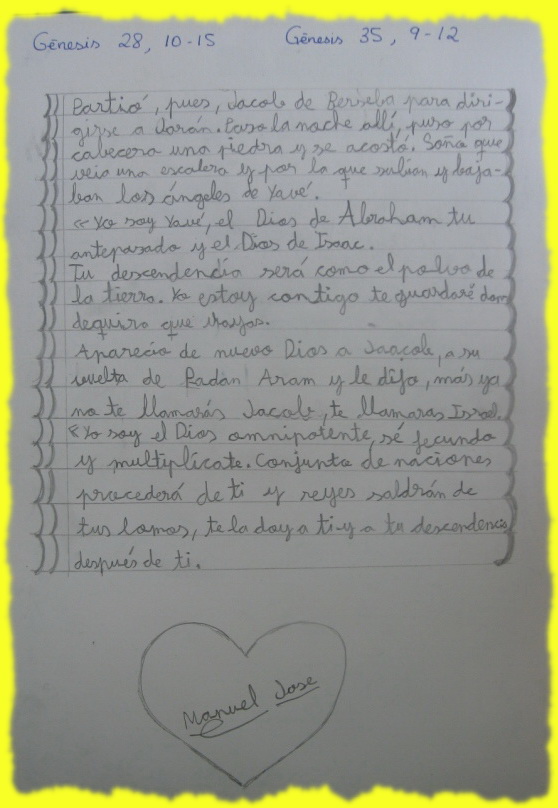 Génesis 28, 10-15 Génesis 35, 9-12
Partió, pues, Jacob de Berseba para diri-
girse a Jarán. Paso la noche allí, puso por
cabecera una piedra y se acostó. Soña que
veia una escalera y por la que subian y baja-
ban los ángeles de Yavé.
«Yo soy Yavé, el Dios de Abraham tu
antepasado y el Dios de Isaac.
Tu descendencia será como el polvo de
la tierra. Yo estoy contigo te guardaré don
dequira que vayas.
Aparecio de nuevo Dios a Jaacob, a su
vuelta de Padán Aram y le dijo, más ya
no te llamarás Jacob, te llamaras Israel.
«Yo soy el Dios omnipotente, sé fecundo
y multiplicate. Conjunto de naciones
procederá de ti y reyes saldrán de
tus lomos, te la doy a ti y a tu descendencia
después de ti.
Manuel Jose